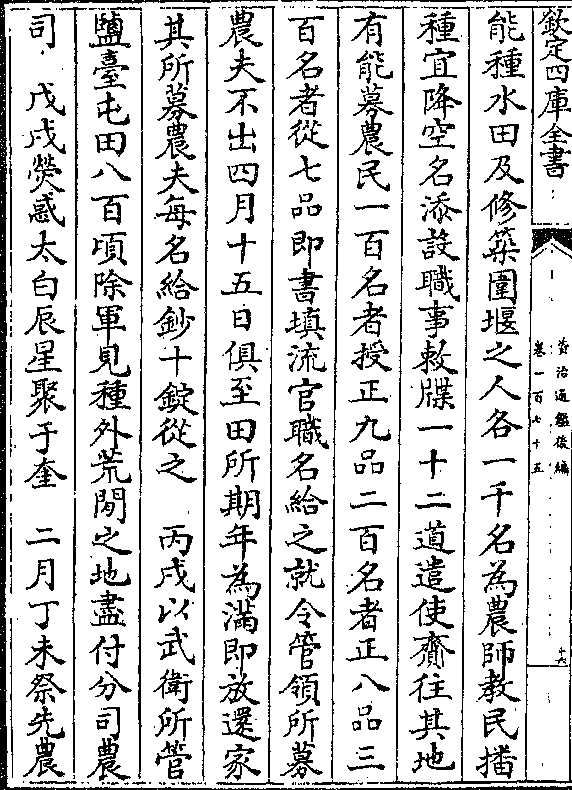 欽定四庫全書
資治通鑑後編
卷一百七十五
十六
能種水田及修築圍堰之人各一千名為農師教民播
種宜降空名添設職事敕牒一十二道遣使齎往其地
有能募農民一百名者授正九品二百名者正八品三
百名者從七品即書填流官職名給之就令管領所募
農夫不出四月十五日俱至田所期年為滿即放還家
其所募農夫每名給鈔十錠從之　丙戌以武衛所管
鹽臺屯田八百頃除軍見種外荒閒之地盡付分司農
司　戊戌熒惑太白辰星聚于奎　二月丁未祭先農